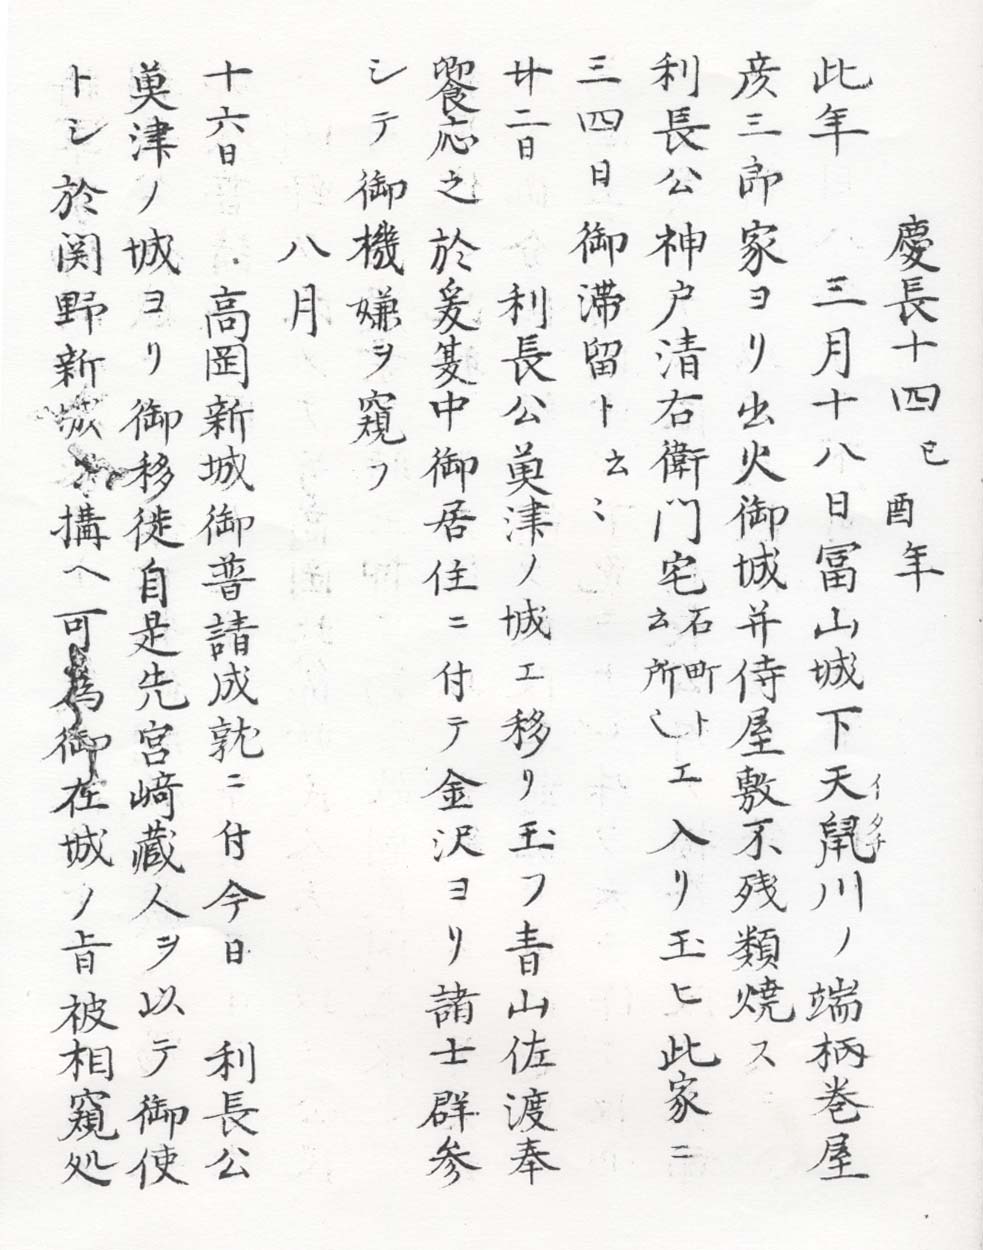 慶長十四己酉年
此年 三月十八日冨山城下天鼠川ノ端柄巻屋
イタチ
彦三郎家ヨリ出火御城并侍屋敷不残類焼ス
利長公神戸清右衛门宅石町ト云所也エ入リ玉ヒ此家ニ
三四日御滞留ト云々
廿二日 利長公奠津ノ城エ移リ玉フ青山佐渡奉
饗応之於爰夏中御居住ニ付テ金沢ヨリ諸士群参
シテ御機嫌ヲ窺フ
八月
十六日 高岡新城御普請成就ニ付今日 利長公
奠津ノ城ヨリ御移徙自是先宮﨑蔵人ヲ以テ御使
トシ於関野新城構ヘ可為御在城ノ旨被相窺処